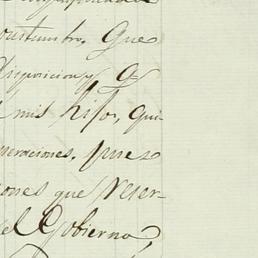 costumbro. Que
Disposicion, y q.
mis hijos, qui
neraciones, pues
ones que reser-
el Gobierno,